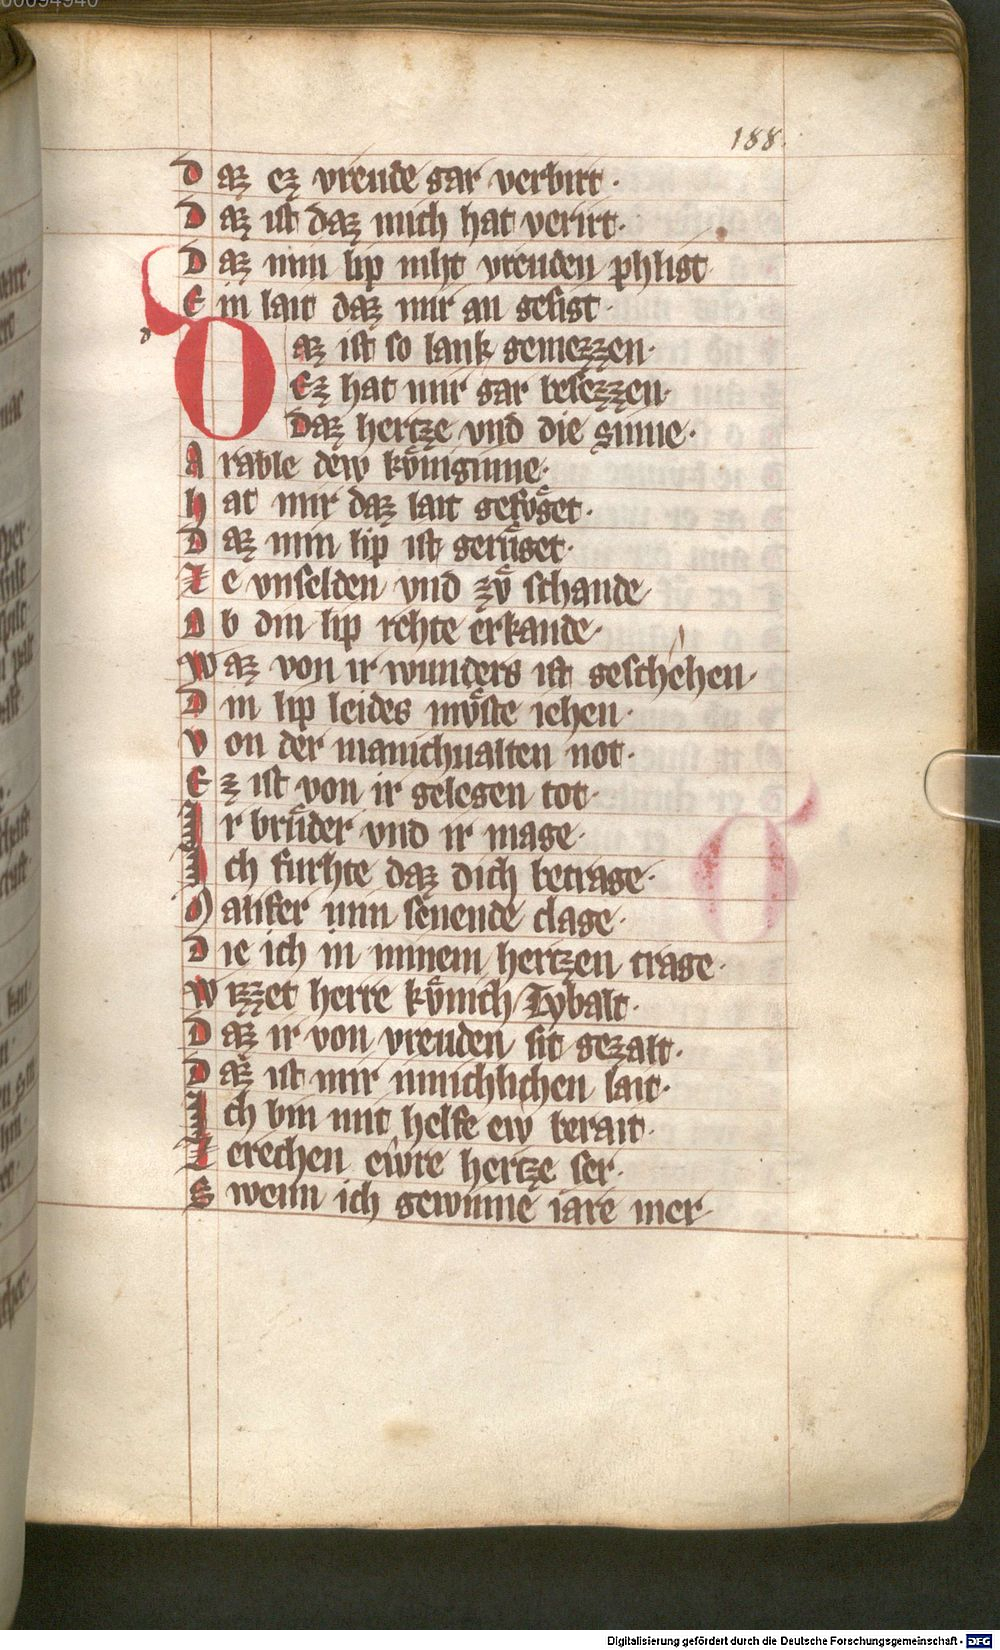 188.
D az ez vreude gar verbirt ·
D az ist daz mich hat verirt·
D az min lip niht vreuden phligt
E in lait daz mir an gesigt·
D az ist so lank gemezzen·
Ez hat mir gar besezzen·
Daz hertze vnd die sinne·
A rable dew küniginne·
h at mir daz lait gefüget·
D az min lip ist gerüget·
Z e vnselden vnd zů schande
O b din lip rehte erkande·
W az von ir wunders ist geschehen·
D in lip leides můste iehen·
V on der manichualten not·
E z ist von ir gelegen tot·
I r brůder vnd ir mage·
I ch furhte daz dich betrage·
M alifer min senende clage·
D ie ich in minem hertzen trage·
W izzet herre künich Tybalt·
D az ir von vreuden sit gezalt·
D az ist mir innichlichen lait·
I ch bin mit helfe ew berait·
Z erechen ewre hertze ser·
S wenn ich gewinne iare mer·
Digitalisierung gefördert durch die Deutsche Forschungsgemeinschaft - DFG